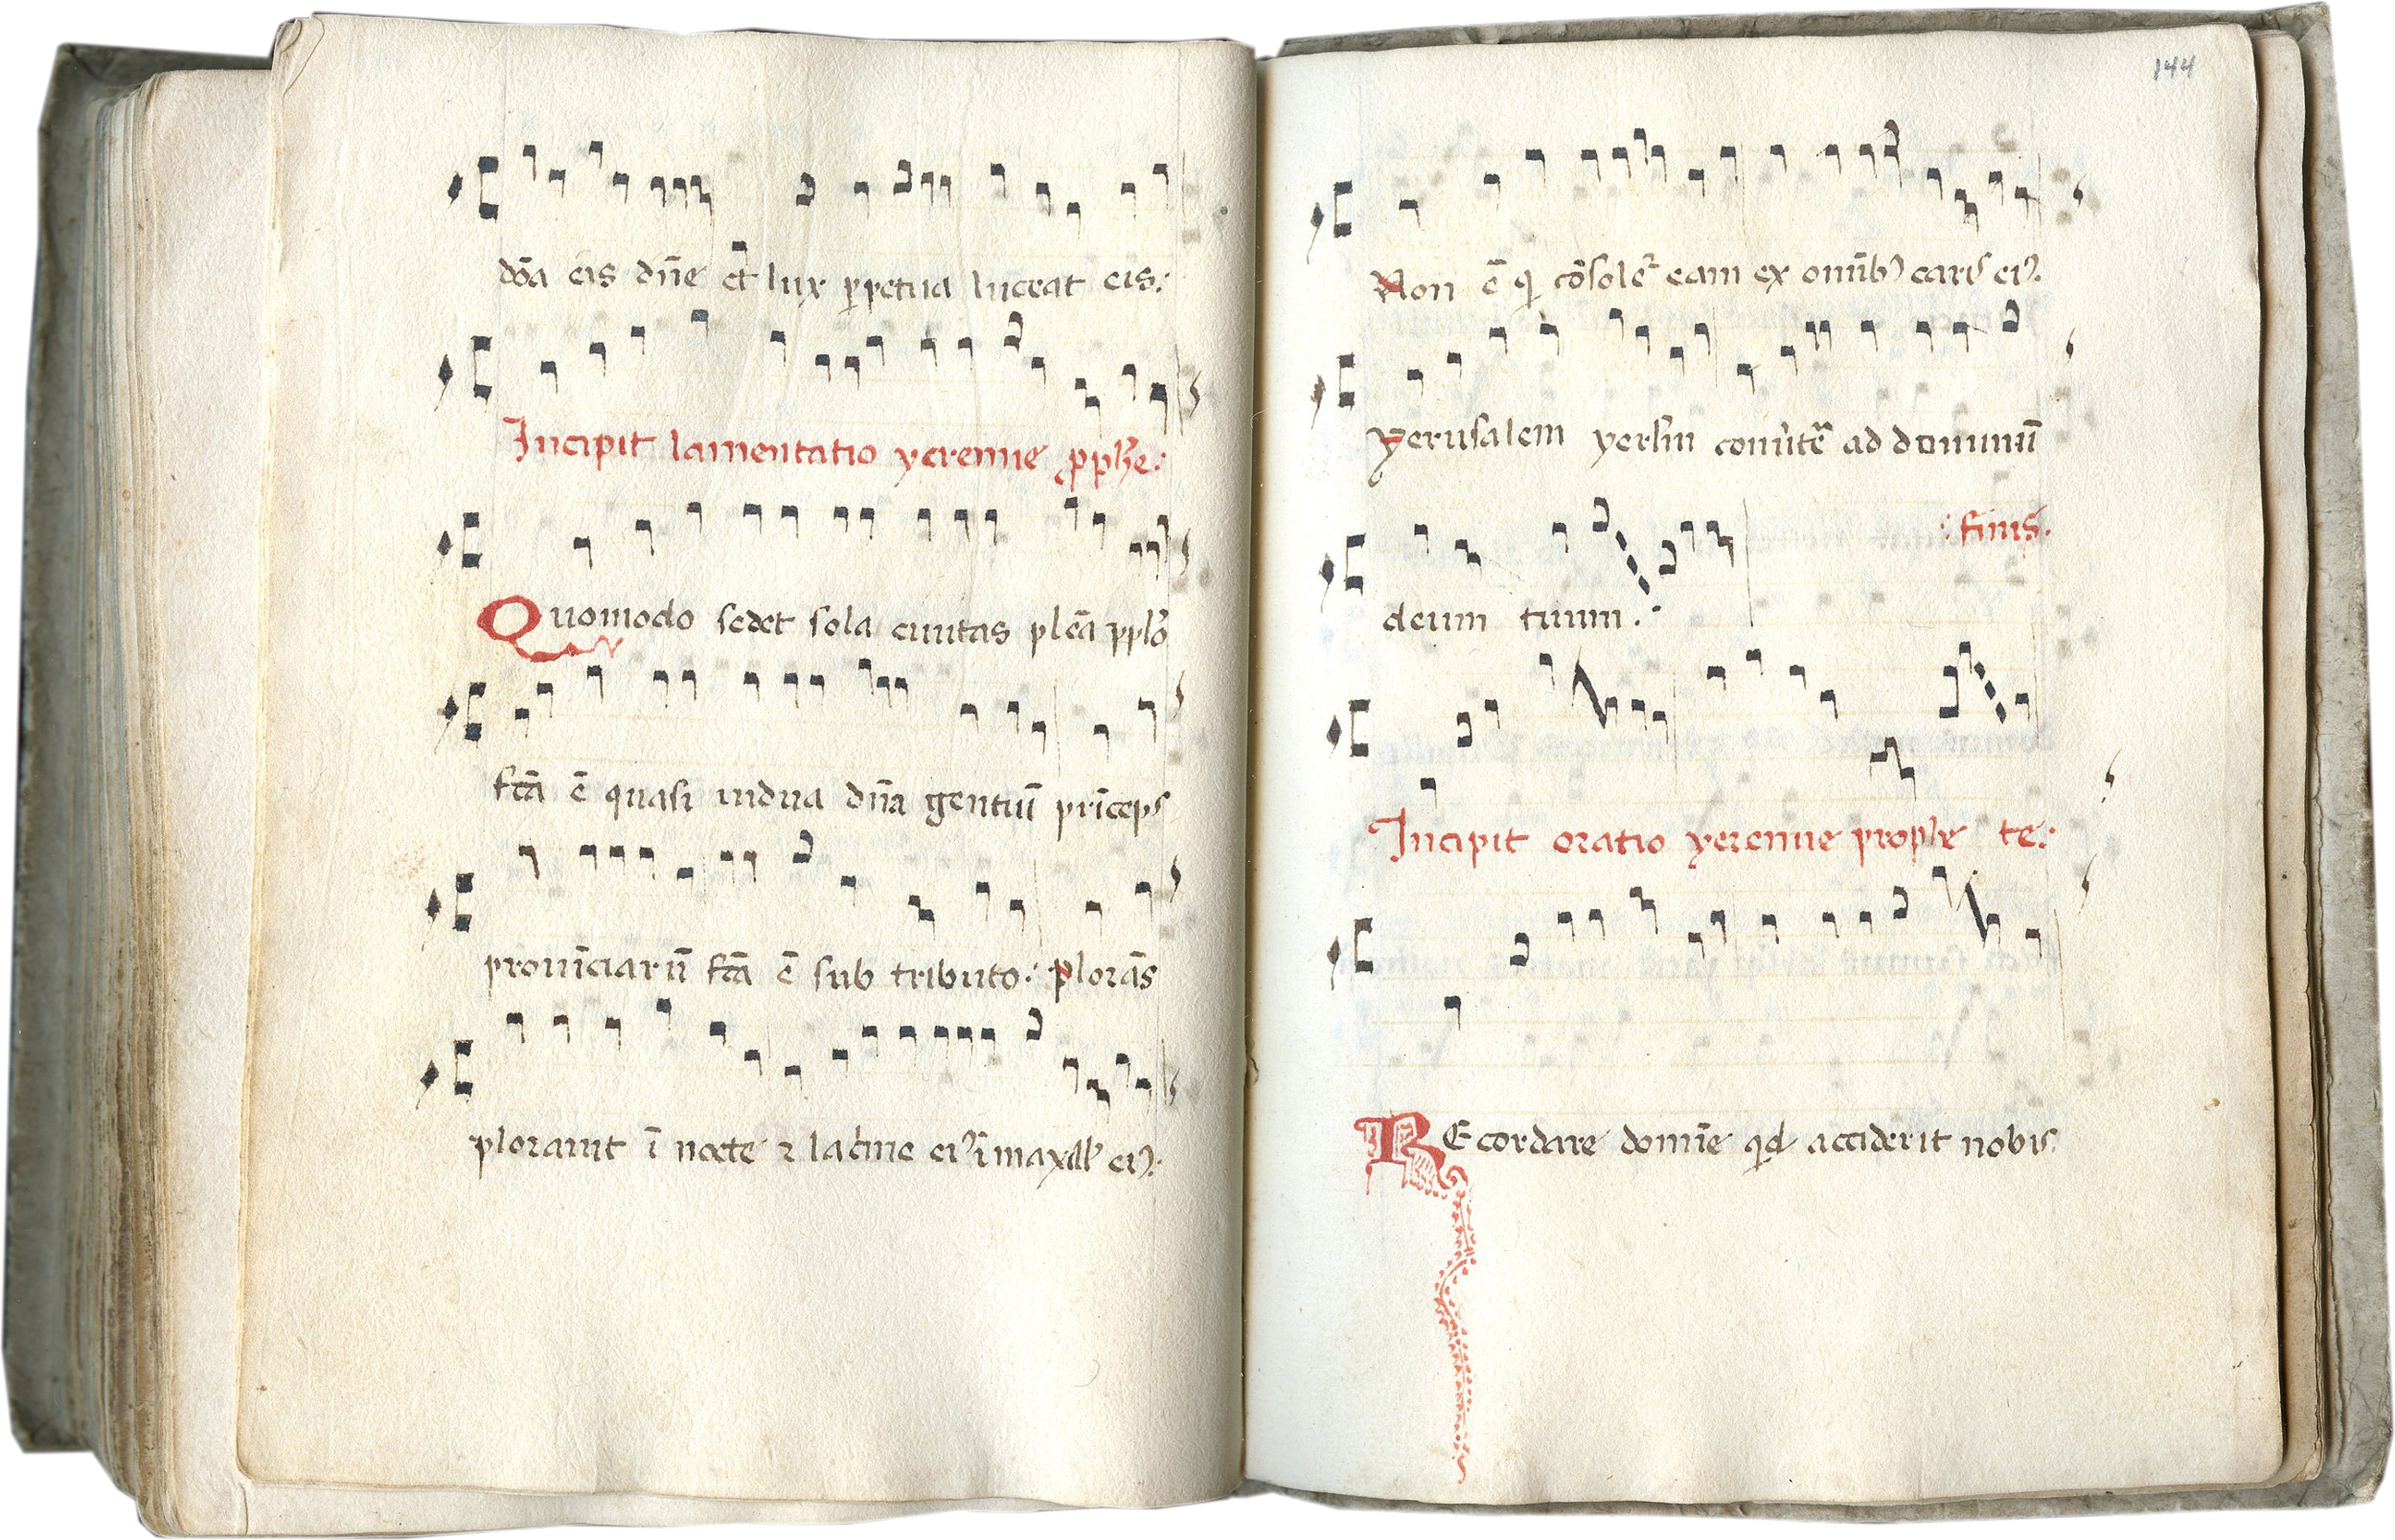 dōa eis dñe et lux ꝑpetua luceat eis:
Incipit lamentatio yeremie ꝓph̃e:
Quomodo sedet sola ciuitas plēa pplō
fc̄ā ē quasi uidua dñā gentiū prīceps
prouīciarū fc̄ā ē sub tributo: plorās
plorauit ī nocte ⁊ lac̄me eiꝰ ī maxill' eiꝰ:
144
Non ē q̇ cōsolet᷑ eam ex om̄ibꝰ caris eiꝰ.
yerusalem yerslm conūte᷑ ad dominū
deum tuum:
: finis.
Incipit oratio yeremie prophe te:
REcordare domīe qid acciderit nobis: